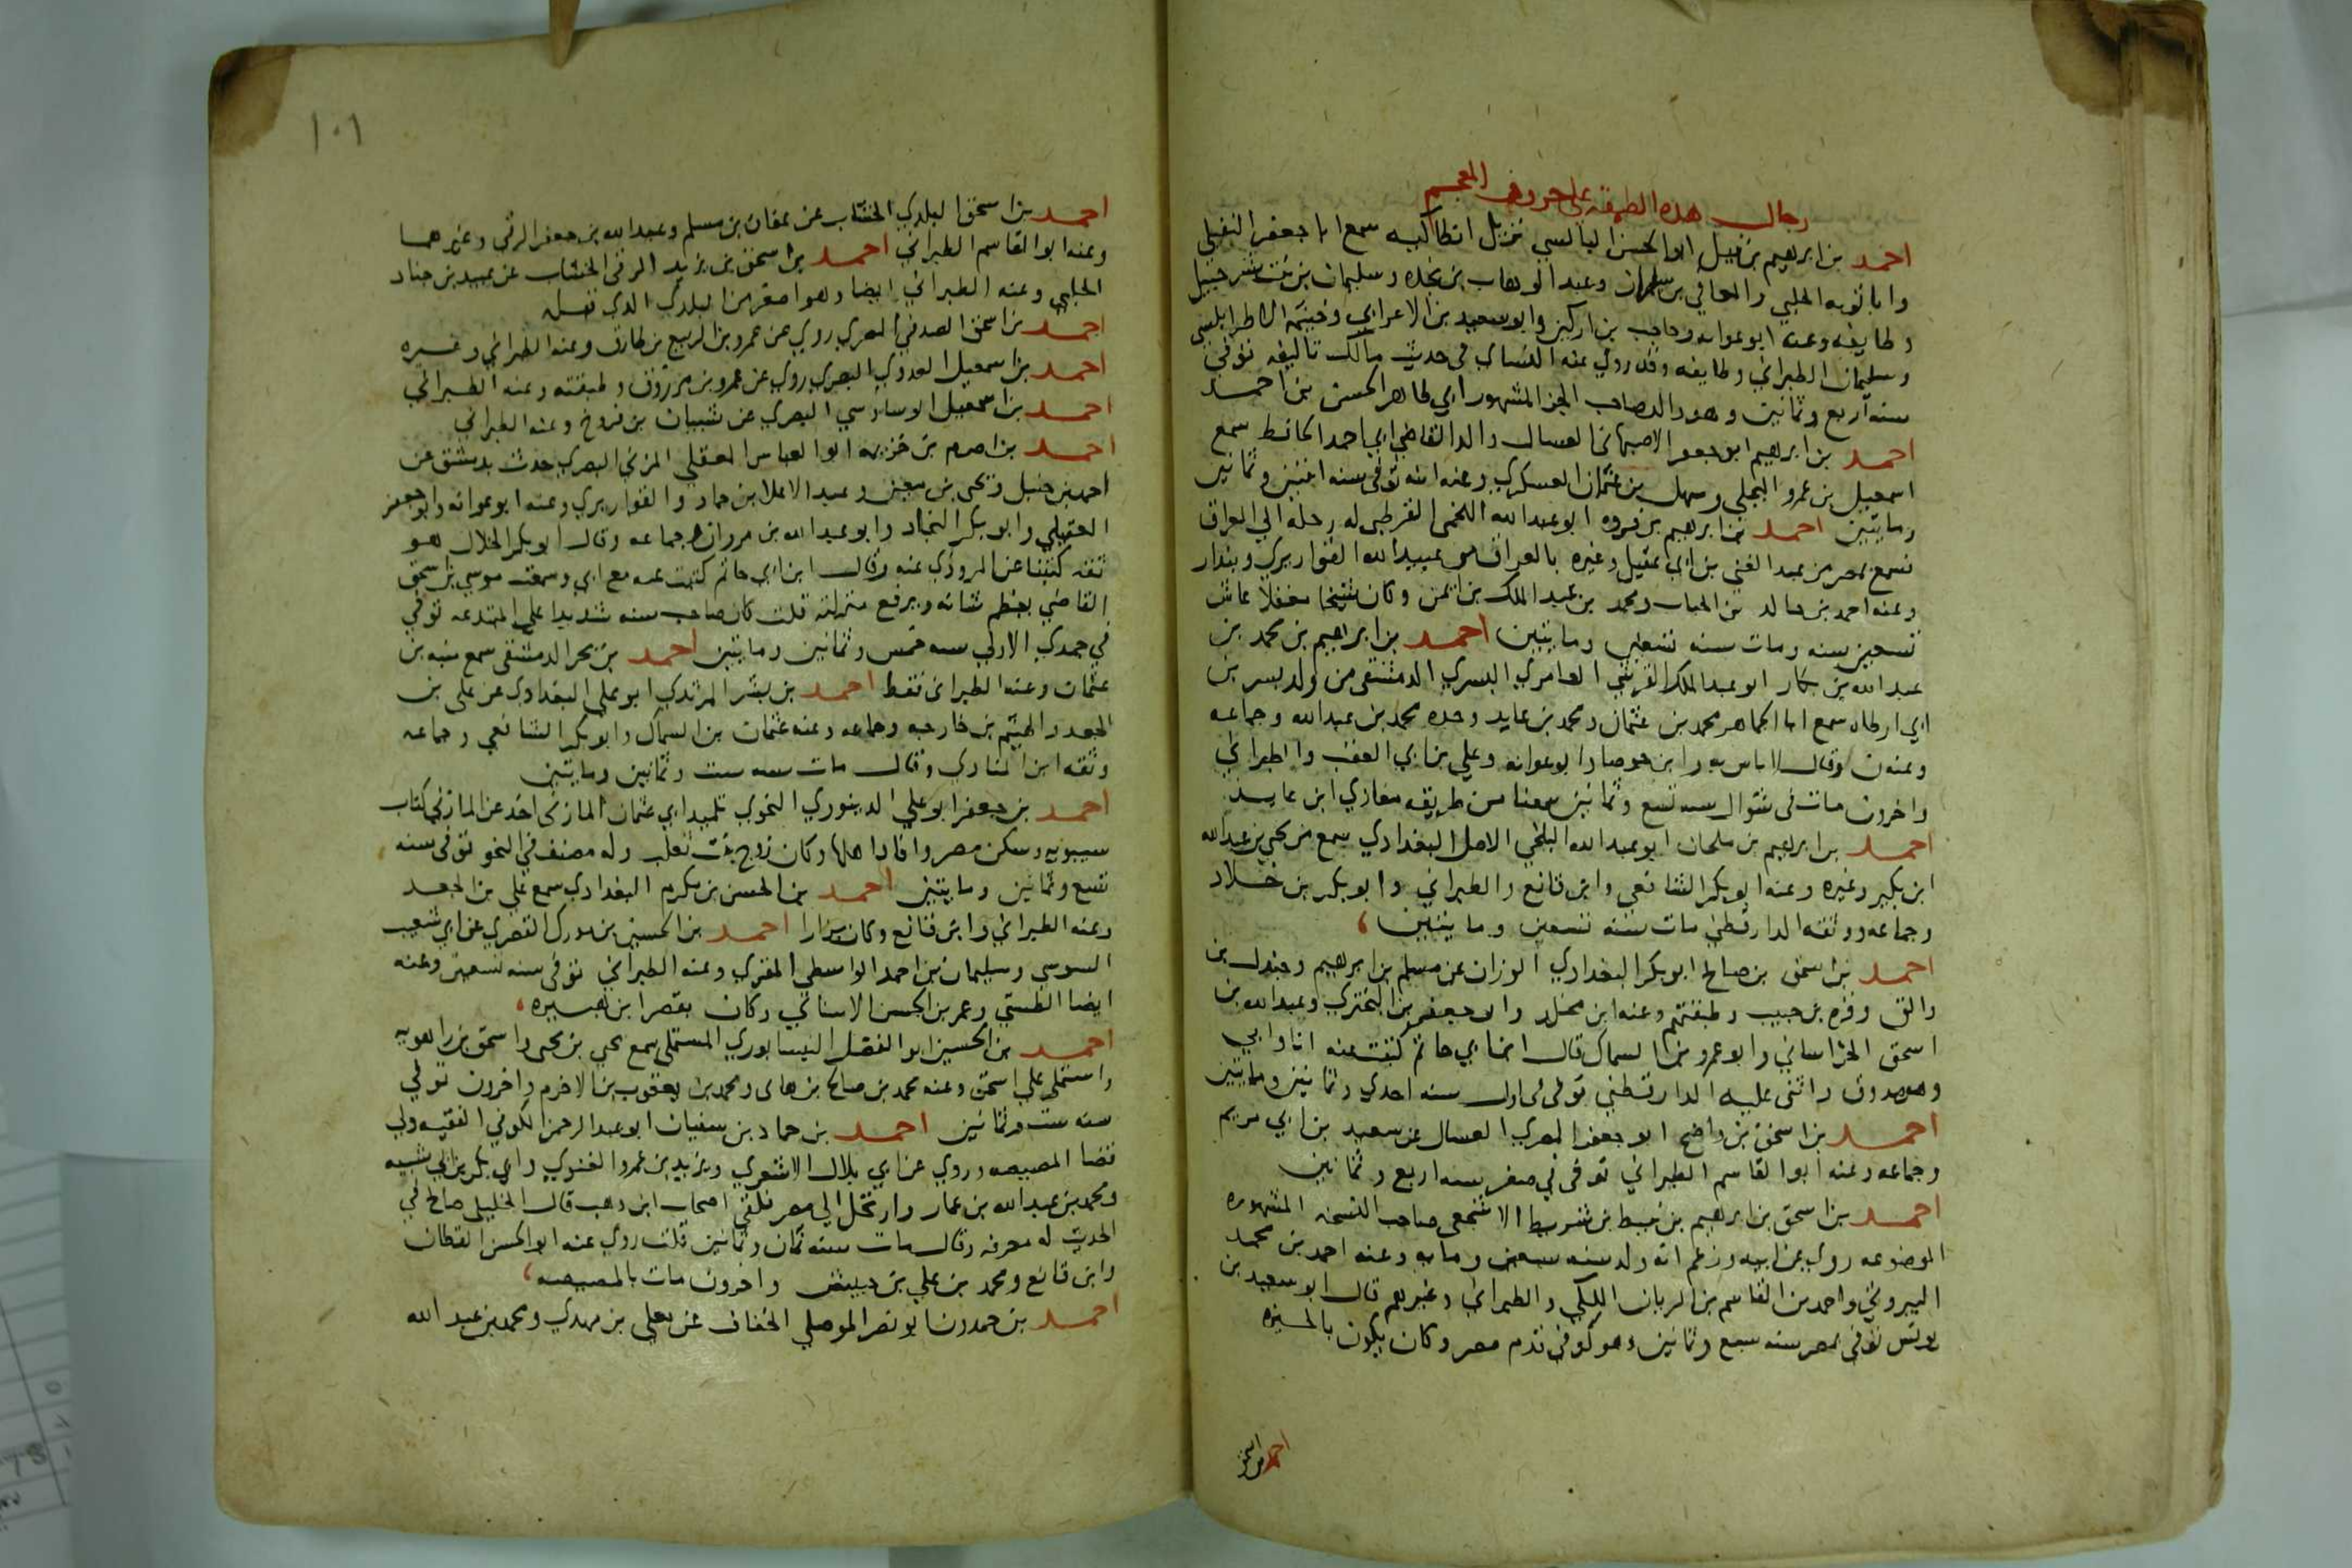 رجال هذه الطبقة على حروف المعجم
احمد بن ابرهيم بن فيل ابو الحسن البالسي نزيل انطاكيه سمع ابا جعفر النفيلي
وابا توبه الحلبي والمعافي بن سليمان وعبد الوهاب بن نجده وسليمان بن بنت شرحبيل
وطايفه وعنه ابو عوانه وحاجب بن اركين وابو سعيد بن الاعرابي وخيثمه الاطرابلسي
وسليمان الطبراني وطايفه وقد روي عنه النساي في حديث مالك تاليفه توفي
سنه اربع وثمانين وهو والد صاحب الجز المشهور ابي طاهر الحسن بن احمد
احمد بن ابرهيم ابو جعفر الاصبهاني العسال والد القاضي ابي احمد الحافظ سمع
اسمعيل بن عمرو البجلي وسهل بن عثمان العسكري وعنه ابنه توفي سنه اثنين وثمانين
ومايتين احمد بن ابرهيم بن فروه ابو عبد الله اللخمي القرطبي له رحله الي العراق
سمع بمصر من عبد الغني بن ابي عقيل وغيره بالعراق من عبيد الله القواريري وبندار
وعنه احمد بن خالد بن الحباب ومحمد بن عبد الملك بن ايمن وكان شيخا مغفلا عاش
تسعين سنه ومات سنه تسعين ومايتين احمد بن ابراهيم بن محمد بن
عبد الله بن بكار ابو عبد الملك القرشي العامري البسري الدمشقي من ولد بسر بن
ابي ارطاه سمع ابا الجماهر محمد بن عثمان ومحمد بن عايد وجده محمد بن عبد الله وجماعه
وعنه ن وقال لا باس به وابن جوصا وابو عوانه وعلي بن ابي العقب والطبراني
واخرون مات في شوال سنه تسع وثمانين سمعنا من طريقه مغازي ابن عايد
احمد بن ابرهيم بن ملحان ابو عبد الله البلخي الاصل البغدادي سمع من يحيى بن عبد الله
ابن بكير وغيره وعنه ابو بكر الشافعي وابن قانع والطبراني وابو بكر بن خلاد
وجماعه ووثقه الدارقطني مات سنه تسعين ومايتين
احمد بن اسحق بن صالح ابو بكر البغدادي الوزان عن مسلم بن ابرهيم وجندل بن
والق وقره بن حبيب وطبقتهم وعنه ابن مخلد وابو جعفر بن البختري وعبد الله بن
اسحق الخراساني وابو عمرو بن السماك قال ابن ابي حاتم كتبت عنه انا وابي
وهو صدوق واثنى عليه الدارقطني توفي في اول سنه احدي وثمانين ومايتين
احمد بن اسحق بن واضح ابو جعفر المصري العسال عن سعيد بن ابي مريم
وجماعه وعنه ابو القاسم الطبراني توفي في صفر سنه اربع وثمانين
احمد بن اسحق بن ابرهيم بن نبيط بن شريط الاشجعي صاحب النسخه المشهوره
الموضوعه روي عن ابيه وزعم انه ولد سنه سبعين ومايه وعنه احمد بن محمد
البيروتي واحمد بن القاسم بن الريان اللكي والطبراني وغيرهم قال ابو سعيد بن
يونس توفي بمصر سنه سبع وثمانين وهو كوفي قدم مصر وكان يكون بالجيزه
احمد بن اسحق
١٠١
احمد بن اسحق البلدي الخشاب عن عفان بن مسلم وعبد الله بن جعفر الرقي وغيرهما
وعنه ابو القاسم الطبراني احمد بن اسحق بن يزيد الرقي الخشاب عن عبيد بن جناد
الحلبي وعنه الطبراني ايضا وهو اصغر من البلدي الذي قبله
احمد بن اسحق الصدفي المصري روي عن عمرو بن الربيع بن طارق وعنه الطبراني وغيره
احمد بن اسمعيل العدوي البصري روي عن عمرو بن مرزوق وطبقته وعنه الطبراني
احمد بن اسمعيل الوساوسي البصري عن شيبان بن فروخ وعنه الطبراني
احمد بن اصرم بن خزيمه ابو العباس المغفلي المزني البصري حدث بدمشق عن
احمد بن حنبل ويحى بن معين وعبد الاعلا بن حماد والقواريري وعنه ابو عوانه وابو جعفر
العقيلي وابو بكر النجاد وابو عبد الله بن مروان وجماعه وقال ابو بكر الخلال هو
ثقه كتبنا عن المروذي عنه وقال ابن ابي حاتم كتبت عنه مع ابي وسمعت موسي بن اسحق
القاضي يعظم شانه ويرفع منزلته قلت كان صاحب سنه شديدا على المبتدعه توفي
في جمدي الاولي سنه خمس وثمانين ومايتين احمد بن بحر الدمشقي سمع منبه بن
عثمان وعنه الطبراني فقط احمد بن بشر المرثدي ابو علي البغدادي عن علي بن
الجعد والهيثم بن خارجه وجماعه وعنه عثمان بن السماك وابو بكر الشافعي وجماعه
وثقه ابن المنادي وقال مات سنه ست وثمانين ومايتين
احمد بن جعفر ابو علي الدينوري النحوي تلميد ابي عثمان المازني اخذ عن المازني كتاب
سيبويه وسكن مصر وافاد اهلها وكان زوج بنت ثعلب وله مصنف في النحو توفي سنه
تسع وثمانين ومايتين احمد بن الحسن بن مكرم البغدادي سمع علي بن الجعد
وعنه الطبراني وابن قانع وكان بزارا احمد بن الحسين بن مدرك القصري عن ابي شعيب
السوسي وسليمان بن احمد الواسطي المقري وعنه الطبراني توفي سنه تسعين وعنه
ايضا الطستي وعمر بن الحسن الاشناني وكان بقصر ابن هبيره
احمد بن الحسين ابو الفضل النيسابوري المستملي سمع يحيى بن يحيى واسحق بن راهويه
واستملي علي اسحق وعنه محمد بن صالح بن هاني ومحمد بن يعقوب بن الاخرم واخرون توفي
سنه ست وثمانين احمد بن حماد بن سفيان ابو عبد الرحمن الكوفي الفقيه ولي
قضا المصيصه وروي عن ابي بلال الاشعري ويزيد بن عمرو الغنوي وابي بكر بن ابي شيبه
ومحمد بن عبد الله بن عمار وارتحل الي مصر فلقي اصحاب ابن وهب قال الخليلي صالح في
الحديث له معرفه وقال مات سنه ثمان وثمانين قلت روي عنه ابو الحسن القطان
وابن قانع ومحمد بن علي بن حبيش واخرون مات بالمصيصه
احمد بن حمدون ابو نصر الموصلي الخفاف عن معلى بن مهدي ومحمد بن عبد الله